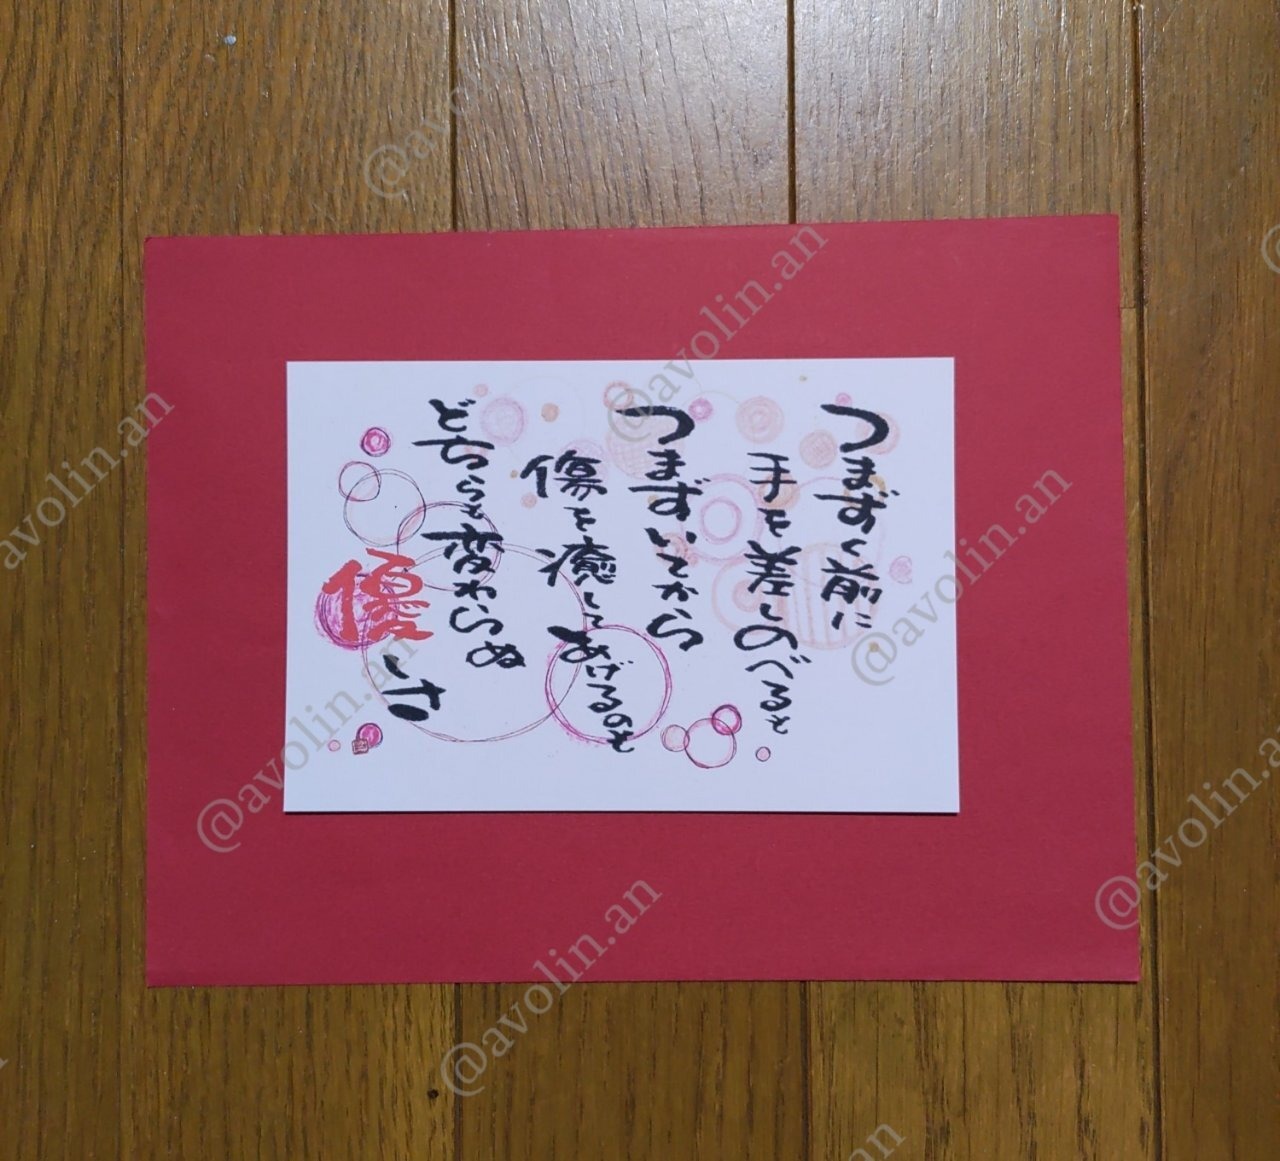 つまずく前に
手を差しのべるも
つまずいてから
傷を癒してあげるのも
どちらも変わらぬ
優しさ
@avolin.an
@avolin.an
@avolin.an
@avolin.an
@avolin.an
@avolin.an
@avolin.an